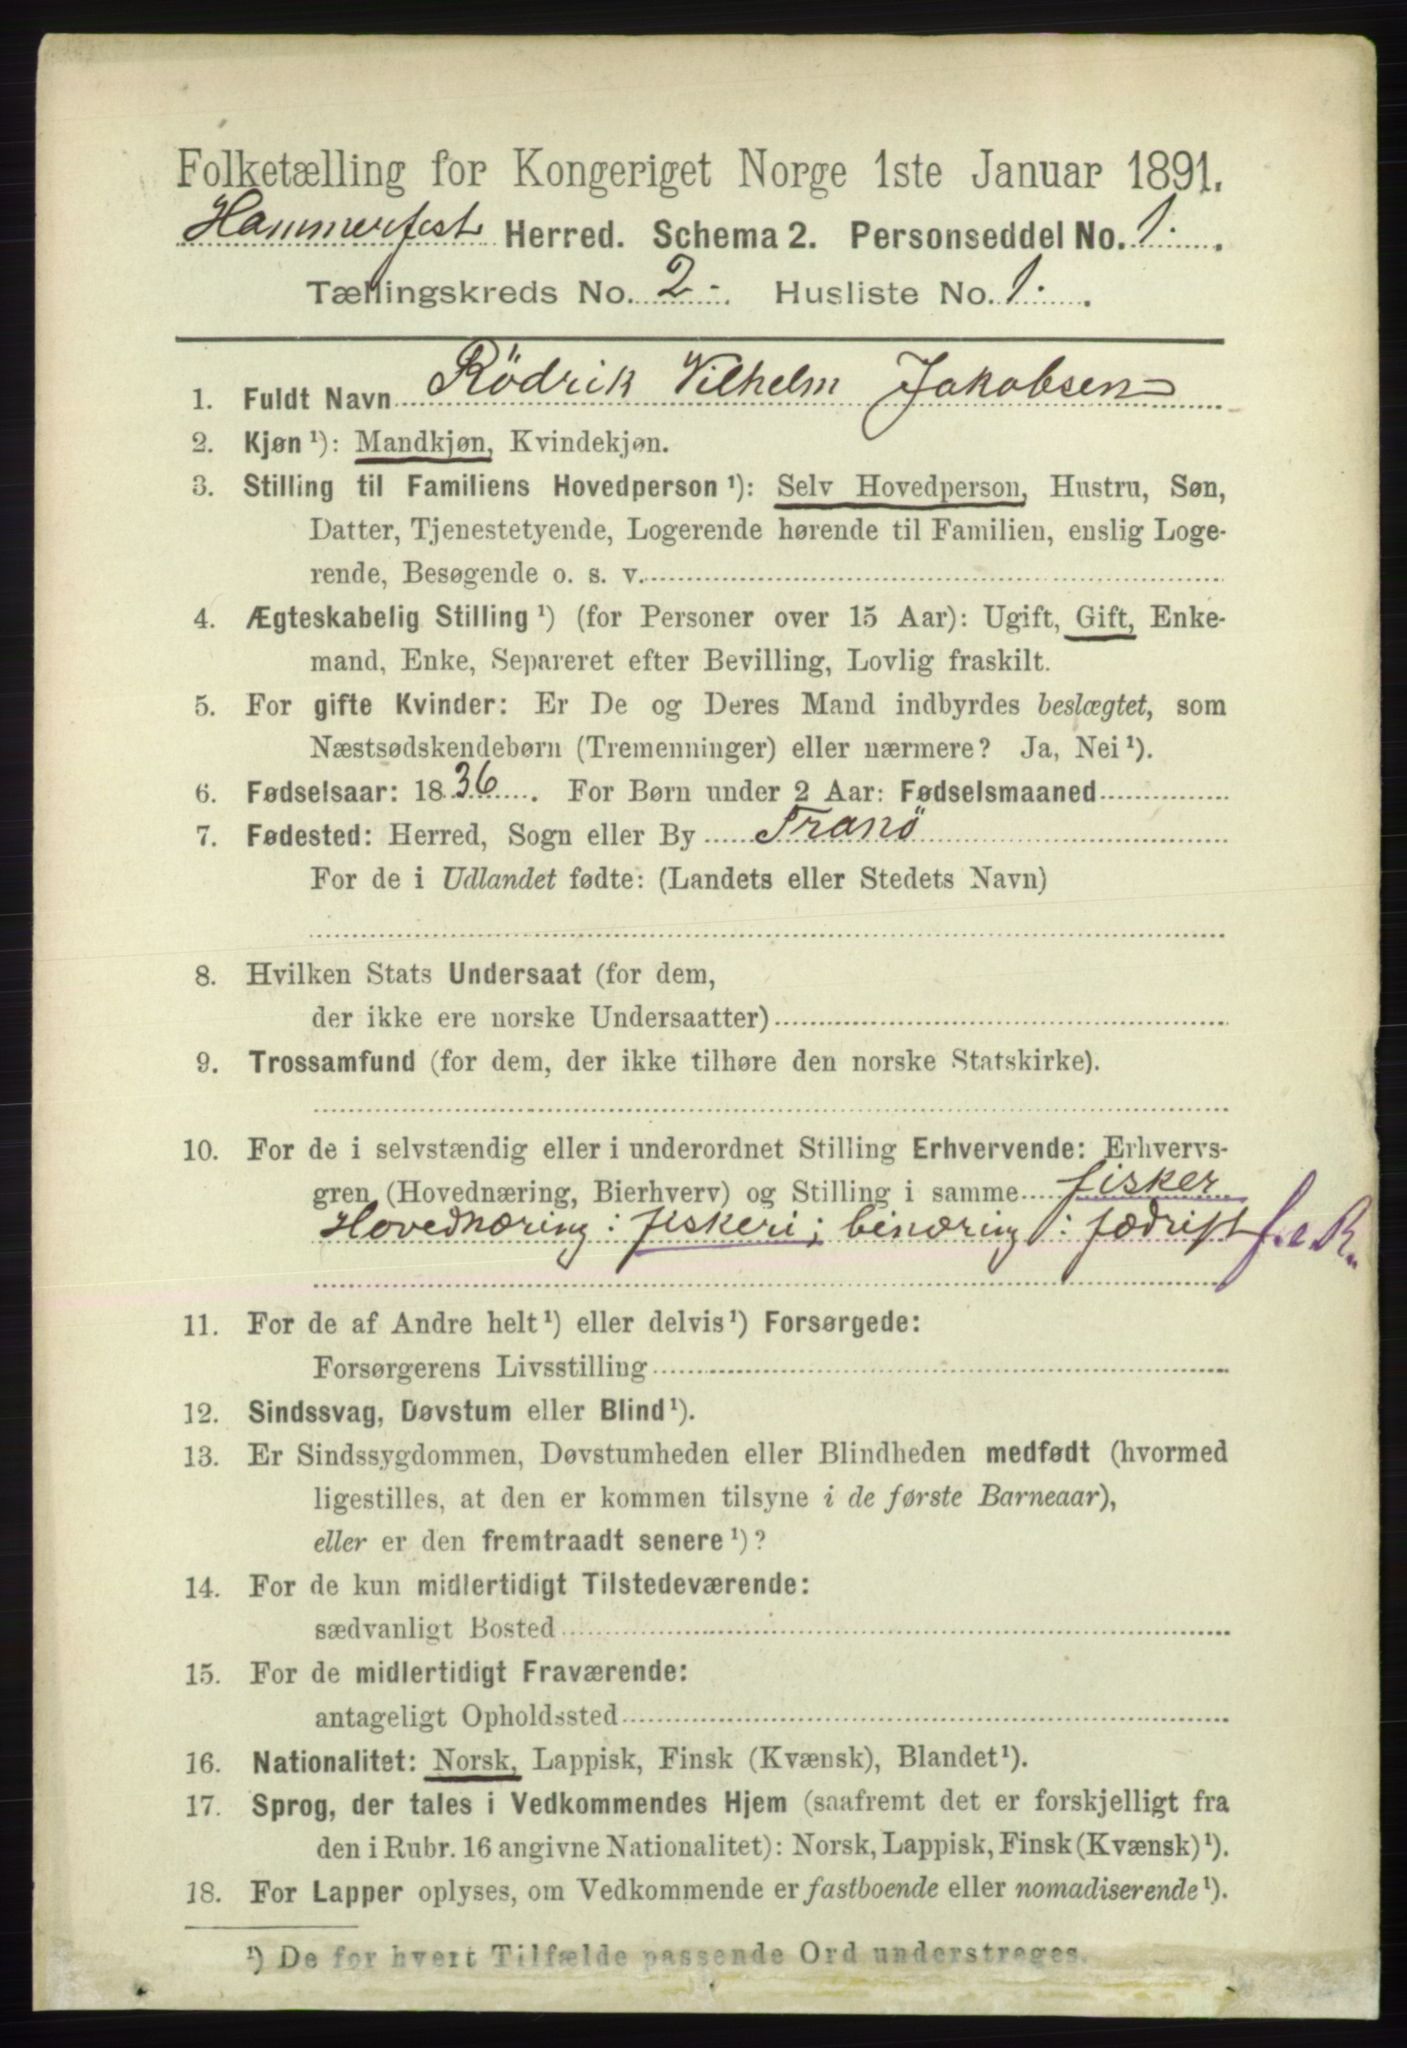 Folketælling for Kongeriget Norge 1ste Januar 1891.
Hammerfest Herred. Schema 2. Personseddel No. 1.
Tællingskreds No. 2. Husliste No. 1.
1. Fuldt Navn Rödrik Vilhelm Jakobsen
2. Kjøn ¹): Mandkjøn, Kvindekjøn.
3. Stilling til Familiens Hovedperson ¹): Selv Hovedperson, Hustru, Søn,
Datter, Tjenestetyende, Logerende hørende til Familien, enslig Loge-
rende, Besøgende o. s. v.
4. Ægteskabelig Stilling ¹) (for Personer over 15 Aar): Ugift, Gift, Enke-
mand, Enke, Separeret efter Bevilling, Lovlig fraskilt.
5. For gifte Kvinder: Er De og Deres Mand indbyrdes beslægtet, som
Næstsødskendebørn (Tremenninger) eller nærmere? Ja, Nei ¹).
6. Fødselsaar: 1836. For Børn under 2 Aar: Fødselsmaaned
7. Fødested: Herred, Sogn eller By Tranö
For de i Udlandet fødte: (Landets eller Stedets Navn)
8. Hvilken Stats Undersaat (for dem,
der ikke ere norske Undersaatter)
9. Trossamfund (for dem, der ikke tilhøre den norske Statskirke).
10. For de i selvstændig eller i underordnet Stilling Erhvervende: Erhvervs-
gren (Hovednæring, Bierhverv) og Stilling i samme fisker
Hovednæring: fiskeri; binæring: fædrift f. e R.
11. For de af Andre helt ¹) eller delvis ¹) Forsørgede:
Forsørgerens Livsstilling
12. Sindssvag, Døvstum eller Blind ¹).
13. Er Sindssygdommen, Døvstumheden eller Blindheden medfødt (hvormed
ligestilles, at den er kommen tilsyne i de første Barneaar),
eller er den fremtraadt senere ¹)?
14. For de kun midlertidigt Tilstedeværende:
sædvanligt Bosted
15. For de midlertidigt Fraværende:
antageligt Opholdssted
16. Nationalitet: Norsk, Lappisk, Finsk (Kvænsk), Blandet ¹).
17. Sprog, der tales i Vedkommendes Hjem (saafremt det er forskjelligt fra
den i Rubr. 16 angivne Nationalitet): Norsk, Lappisk, Finsk (Kvænsk) ¹).
18. For Lapper oplyses, om Vedkommende er fastboende eller nomadiserende ¹).
¹) De for hvert Tilfælde passende Ord understreges.